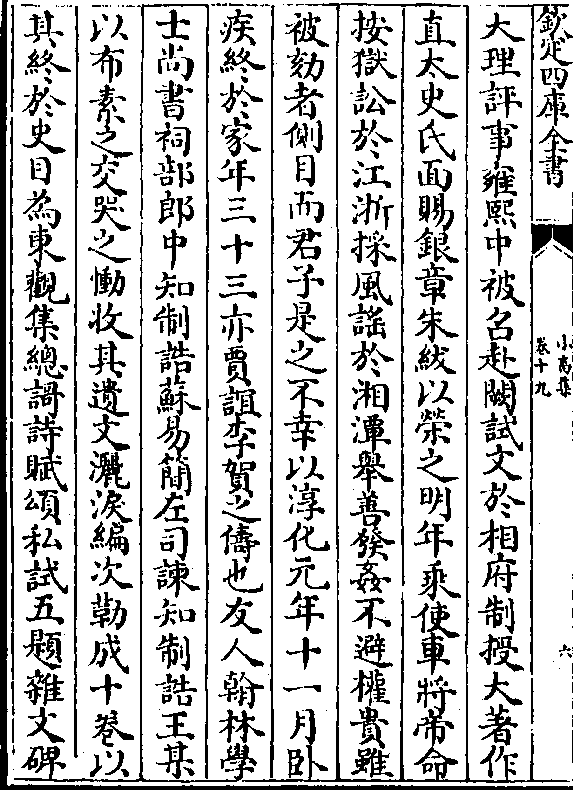 欽定四庫全書
小畜集
卷十九
六
大理評事雍熙中被召赴闕試文於相府制授大著作
直太史氏面賜銀章朱紱以榮之明年乘使車將帝命
按獄訟於江浙採風謠於湘潭舉善發姦不避權貴雖
被劾者側目而君子是之不幸以淳化元年十一月卧
疾終於家年三十三亦賈誼李賀之儔也友人翰林學
士尚書祠部郎中知制誥蘇易簡左司諫知制誥王某
以布素之交哭之慟收其遺文灑淚編次勒成十卷以
其終於史目為東觀集總詩賦頌私試五題雜文碑